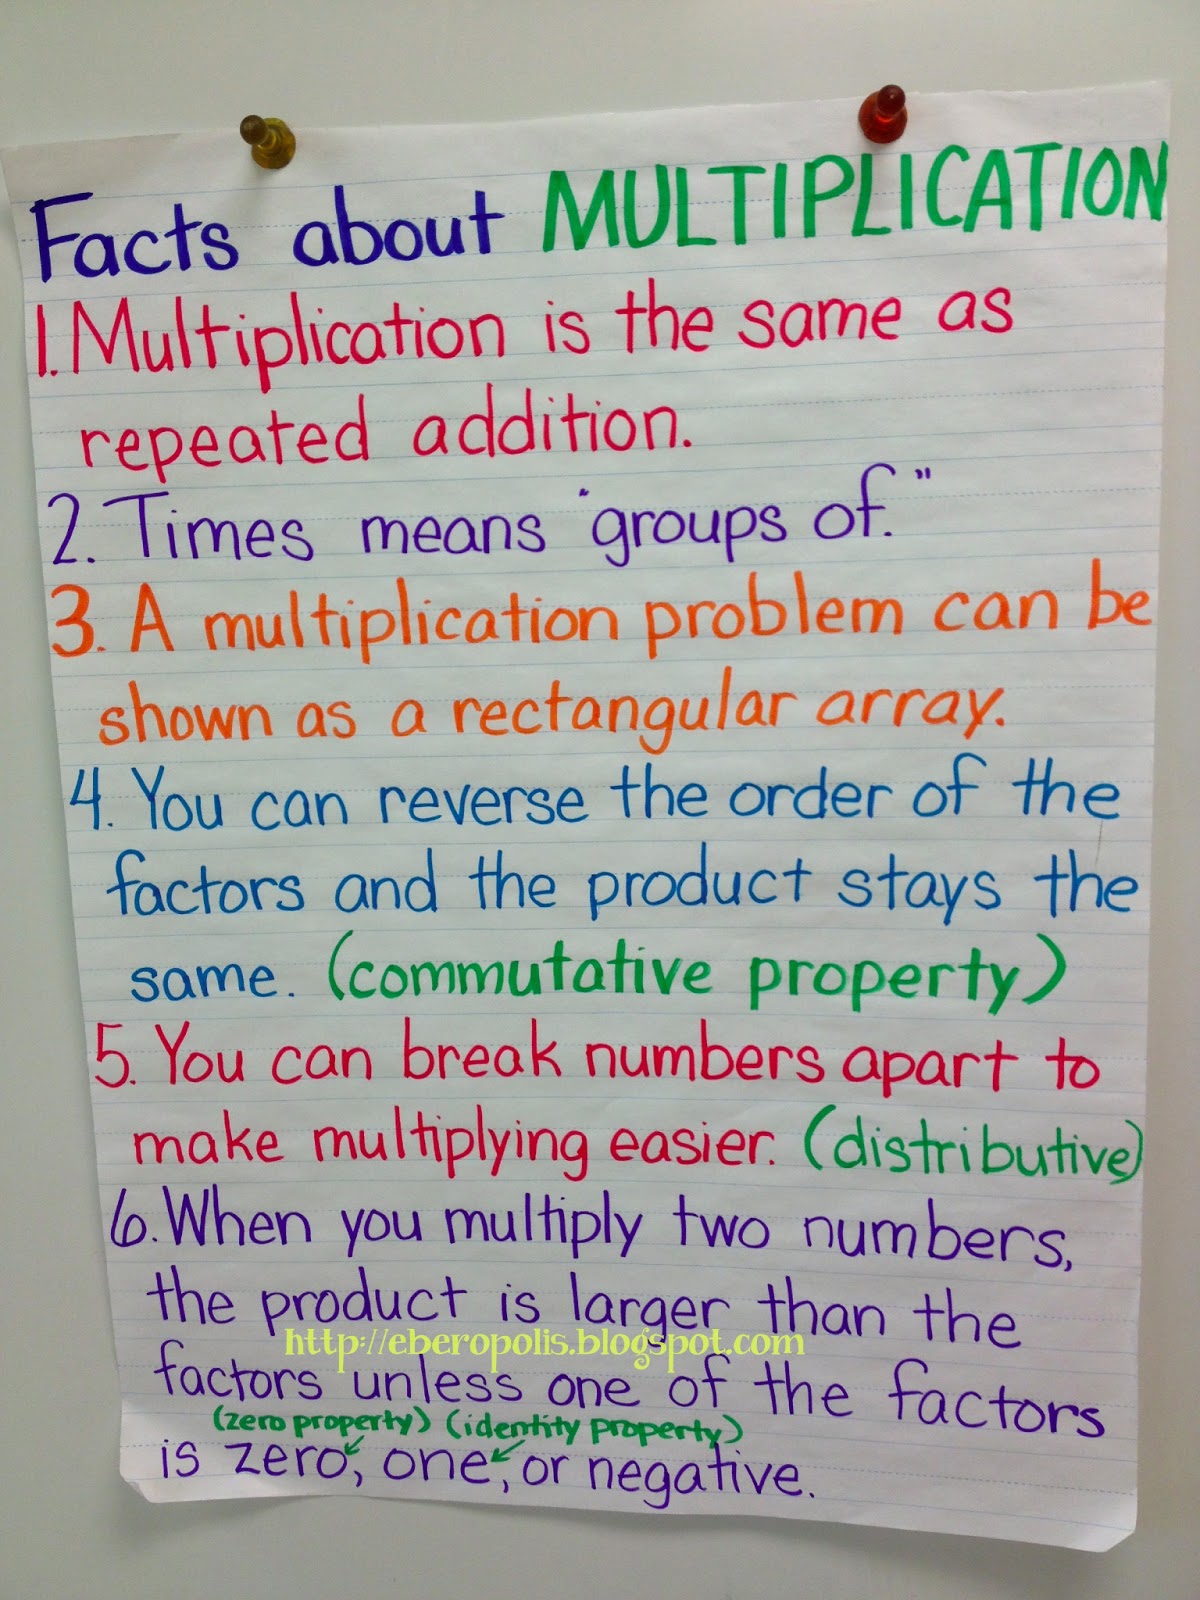 Facts about MULTIPLICATION
1. Multiplication is the same as
repeated addition.
2. Times means "groups of."
3. A multiplication problem can be
shown as a rectangular array.
4. You can reverse the order of the
factors and the product stays the
same. (commutative property)
5. You can break numbers apart to
make multiplying easier. (distributive)
6. When you multiply two numbers,
the product is larger than the
http://eberopolis.blogspot.com
factors unless one of the factors
(zero property) (identity property)
is zero, one, or negative.